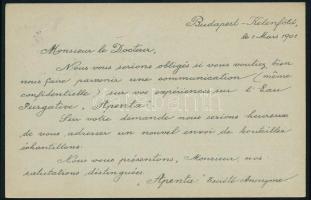 Budapest-Kelenföld,
le 1 Mars 1901
Monsieur le Docteur,
Nous vous serions obligés si vous vouliez bien
nous faire parvenir une communication (même
confidentielle) sur vos expériences sur l'Eau
Purgative "Apenta".
Sur votre demande nous serions heureux
de vous adresser un nouvel envoi de bouteilles
échantillons.
Nous vous présentons, Monsieur nos
salutations distinguées.
"Apenta" Société Anonyme